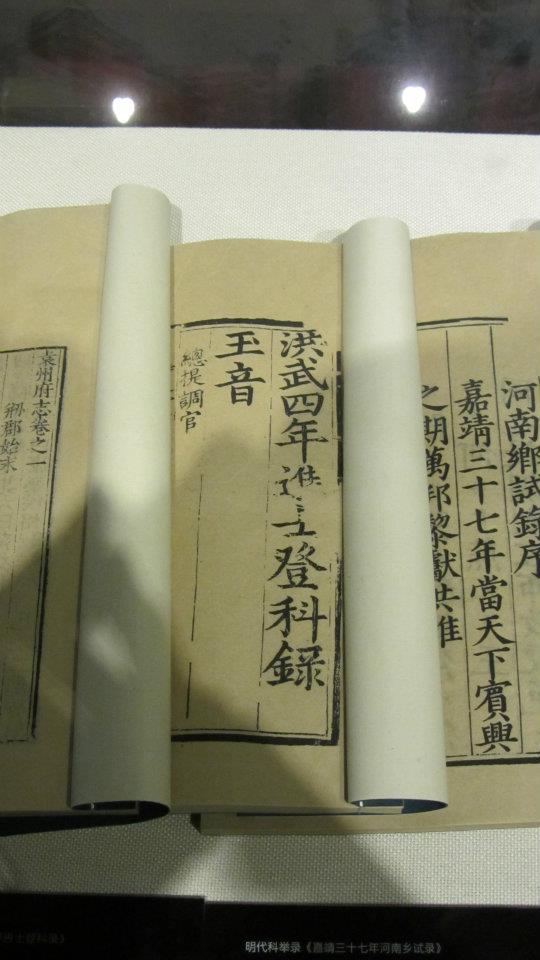 河南鄉試錄序
嘉靖三十七年當天下賓興
之期萬邦黎獻共惟
洪武四年進士登科錄
玉音
總提調官
袁州府志卷之一
郡始末
士登科录》
明代科举录《嘉靖三十七年河南乡试录》